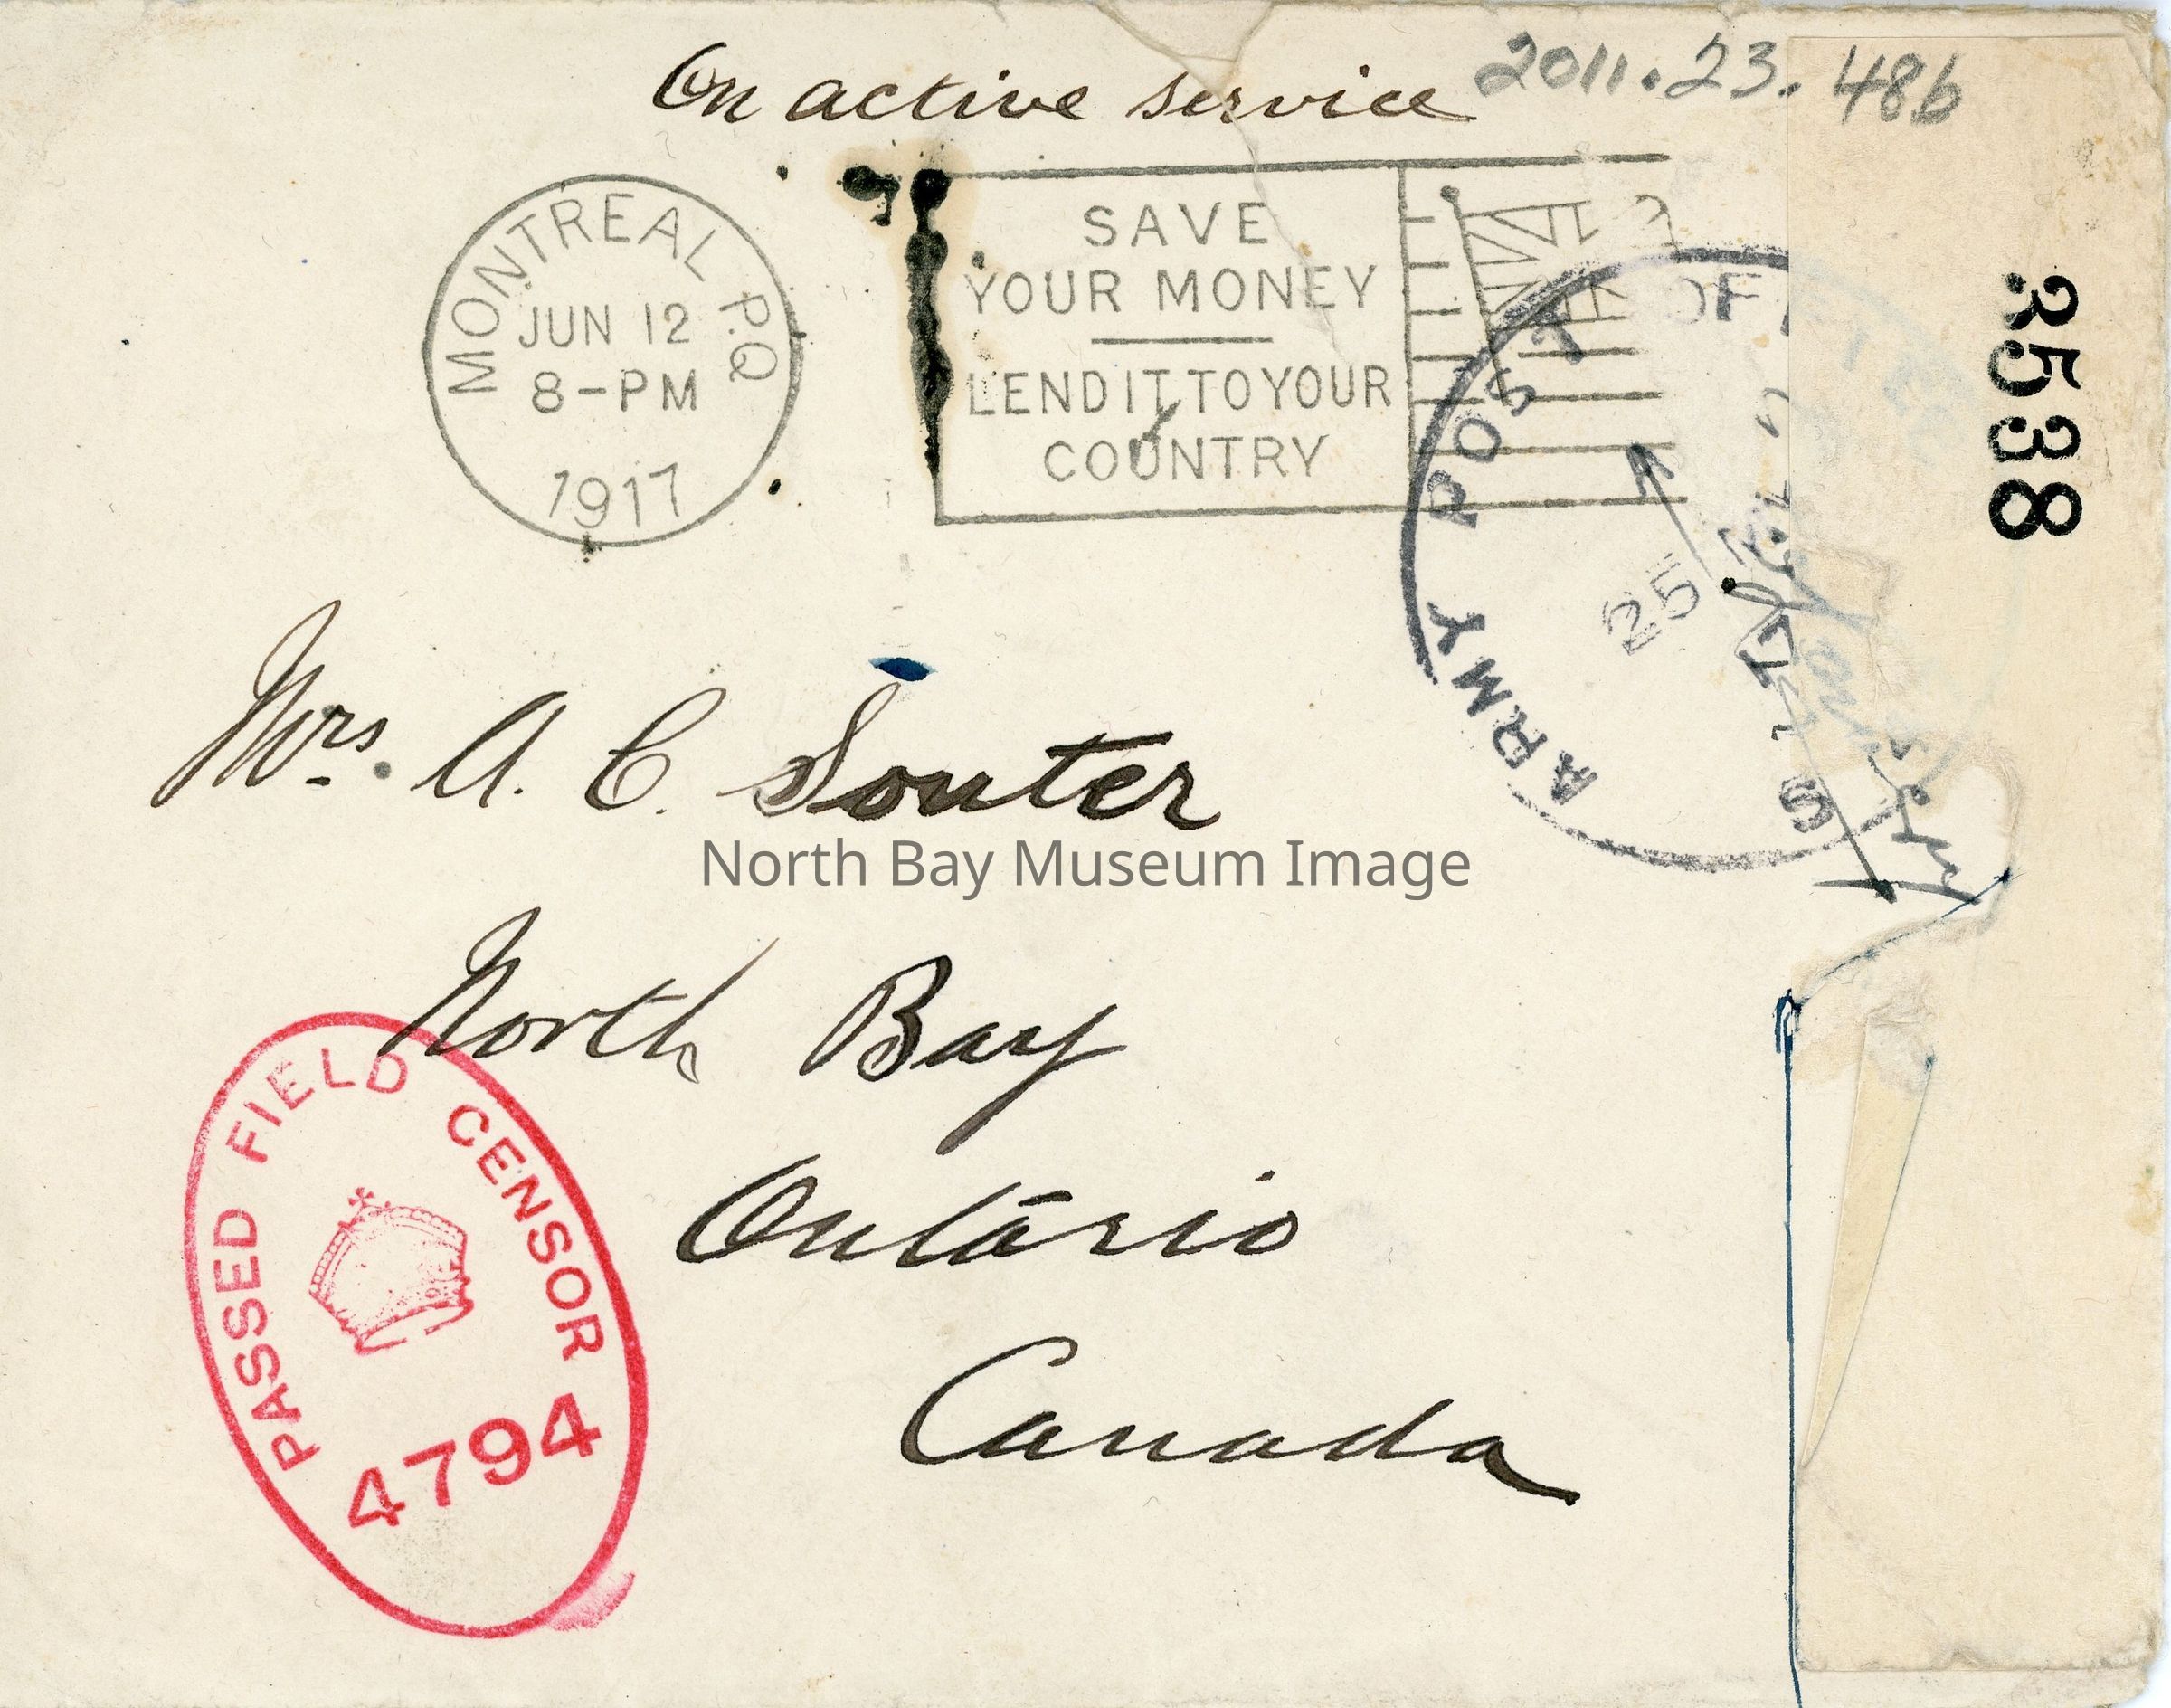 On active service
2011.23.486
MONTREAL P.Q
JUN 12
8-PM
1917
SAVE
YOUR MONEY
LEND IT TO YOUR
COUNTRY
ARMY POST OF
25
S
3538
Mrs. A. C. Souter
North Bay Museum Image
North Bay
Ontario
Canada
PASSED FIELD CENSOR
4794